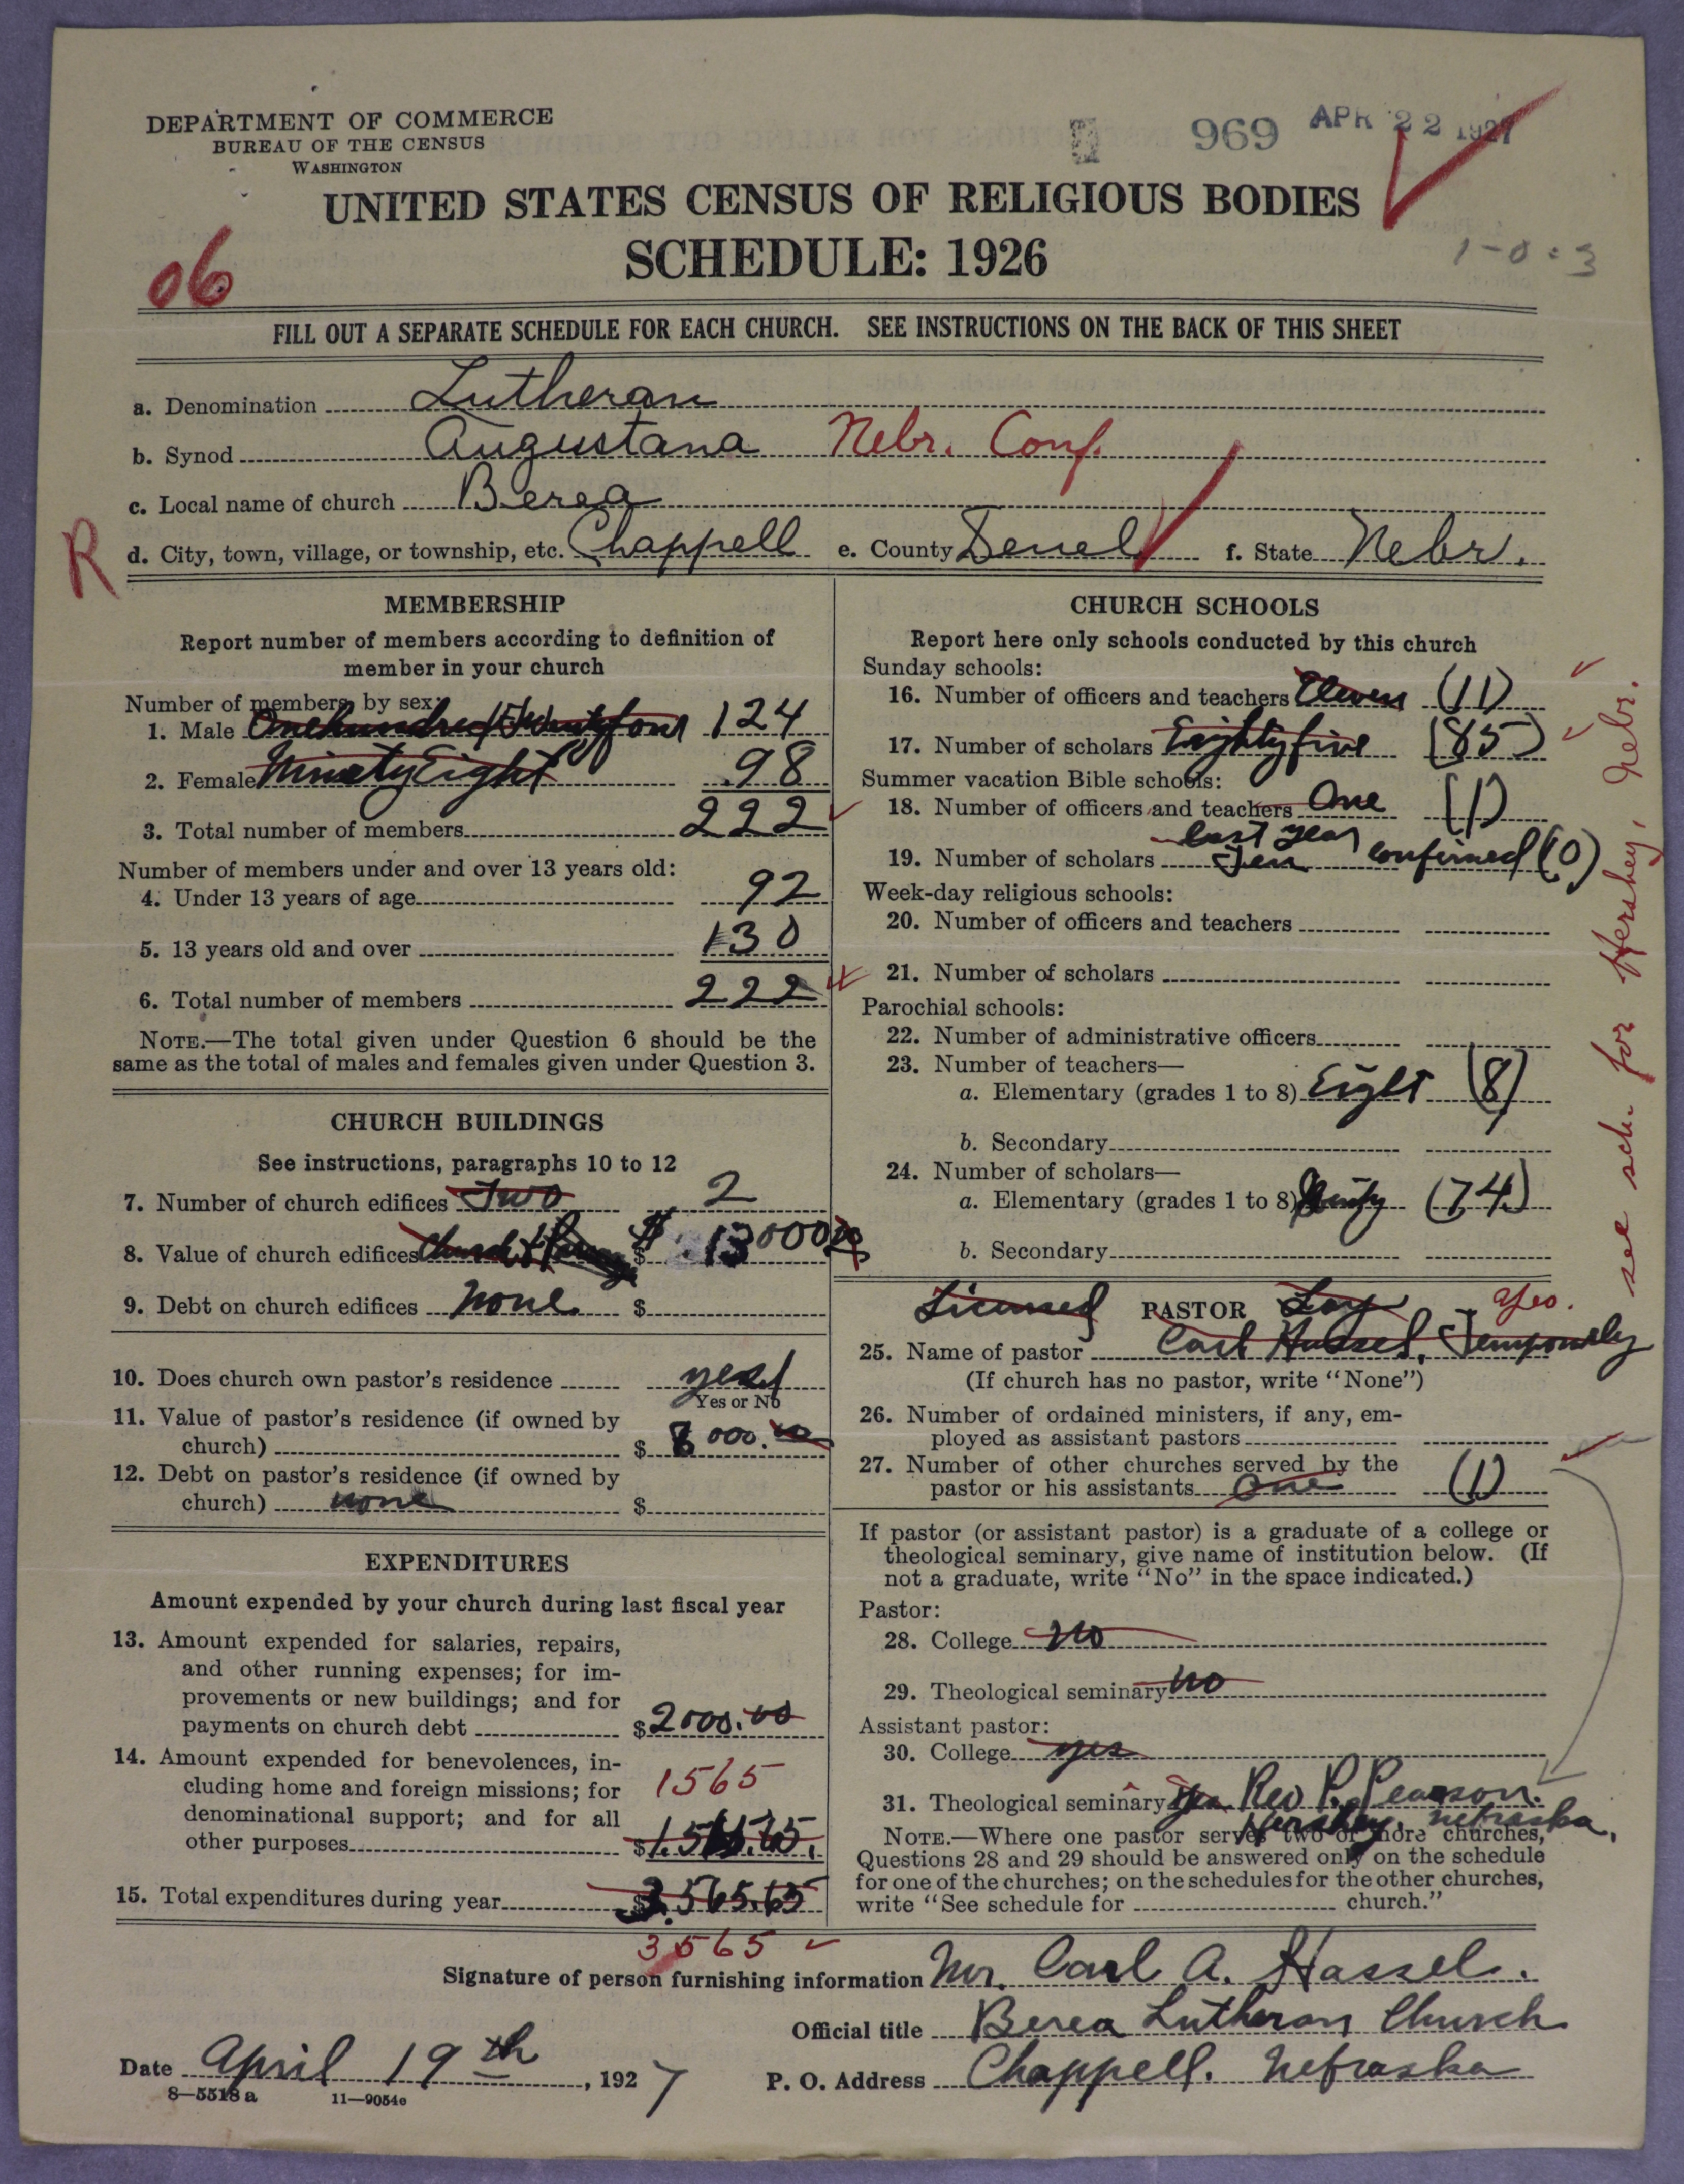 DEPARTMENT OF COMMERCE
BUREAU OF THE CENSUS
WASHINGTON
969 APR 22 1927
UNITED STATES CENSUS OF RELIGIOUS BODIES
SCHEDULE: 1926
06
1-0:3
FILL OUT A SEPARATE SCHEDULE FOR EACH CHURCH. SEE INSTRUCTIONS ON THE BACK OF THIS SHEET
a. Denomination Lutheran
b. Synod Augustana Nebr. Conf.
c. Local name of church Berea
R
d. City, town, village, or township, etc. Chappell e. County Deuel f. State Nebr.
MEMBERSHIP
Report number of members according to definition of
member in your church
Number of members by sex:
1. Male One hundred Twenty four 124
2. Female Ninety Eight 98
3. Total number of members 222
Number of members under and over 13 years old:
4. Under 13 years of age 92
5. 13 years old and over 130
6. Total number of members 222
NOTE.—The total given under Question 6 should be the
same as the total of males and females given under Question 3.
CHURCH BUILDINGS
See instructions, paragraphs 10 to 12
7. Number of church edifices Two 2
8. Value of church edifices Church $ 13000
9. Debt on church edifices None $
10. Does church own pastor's residence yes
Yes or No
11. Value of pastor's residence (if owned by
church) $ 8000.00
12. Debt on pastor's residence (if owned by
church) none $
EXPENDITURES
Amount expended by your church during last fiscal year
13. Amount expended for salaries, repairs,
and other running expenses; for im-
provements or new buildings; and for
payments on church debt $ 2000.00
14. Amount expended for benevolences, in-
cluding home and foreign missions; for 1565
denominational support; and for all
other purposes $ 1.565.65.
15. Total expenditures during year $ 3.565.65
3565
CHURCH SCHOOLS
Report here only schools conducted by this church
Sunday schools:
16. Number of officers and teachers Eleven (11)
17. Number of scholars Eighty five (85)
Summer vacation Bible schools:
18. Number of officers and teachers One (1)
last year
19. Number of scholars Ten confirmed (10)
Week-day religious schools:
20. Number of officers and teachers
21. Number of scholars
Parochial schools:
22. Number of administrative officers
23. Number of teachers—
a. Elementary (grades 1 to 8) Eight (8)
b. Secondary
24. Number of scholars—
a. Elementary (grades 1 to 8) (74)
b. Secondary
Licensed PASTOR Lay Yes.
25. Name of pastor Carl Hassel, Temporarely
(If church has no pastor, write "None")
26. Number of ordained ministers, if any, em-
ployed as assistant pastors
27. Number of other churches served by the
pastor or his assistants One (1)
If pastor (or assistant pastor) is a graduate of a college or
theological seminary, give name of institution below. (If
not a graduate, write "No" in the space indicated.)
Pastor:
28. College No
29. Theological seminary No
Assistant pastor:
30. College yes
31. Theological seminary Yes Rev P. Pearson.
Hershey, Nebraska.
NOTE.—Where one pastor serves two or more churches,
Questions 28 and 29 should be answered only on the schedule
for one of the churches; on the schedules for the other churches,
write "See schedule for church."
see sch. for Hershey, Nebr.
Signature of person furnishing information Mr. Carl A. Hassel.
Official title Berea Lutheran Church
Date April 19th, 1927 P. O. Address Chappell. Nebraska
8—5518a 11—9054e